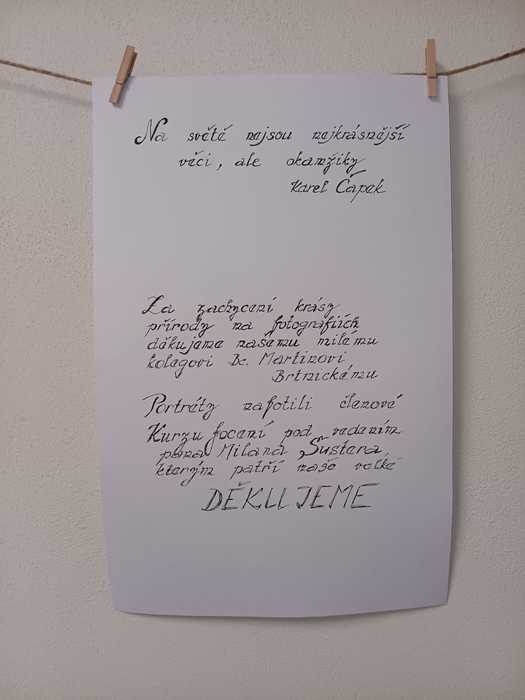 Na světě nejsou nejkrásnější
věci, ale okamžiky
Karel Čapek
Za zachycení krásy
přírody na fotografiích
děkujeme našemu milému
kolegovi Bc. Martinovi
Brtnickému
Portréty nafotili členové
Kurzu focení pod vedením
pana Milana Šustera,
kterým patří naše velké
DĚKUJEME